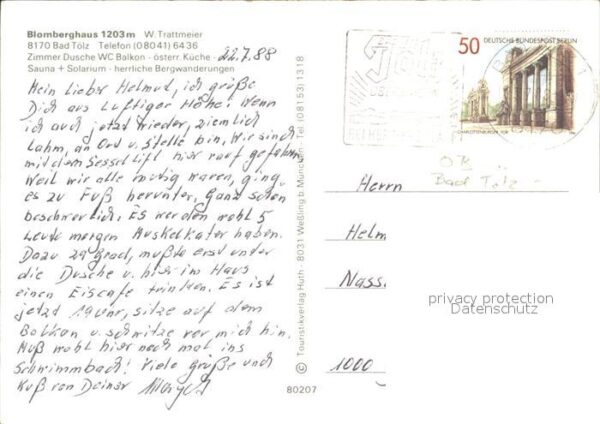 Blomberghaus 1203m W. Trattmeier
8170 Bad Tölz Telefon (0 80 41) 64 36
Zimmer Dusche WC Balkon - österr. Küche -
Sauna + Solarium - herrliche Bergwanderungen
22.7.88
Mein lieber Helmut, ich grüße
Dich aus luftiger Höhe! Wenn
ich auch jetzt wieder, ziemlich
lahm, an Ort u. Stelle bin. Wir sind
mit dem Sessellift hier rauf gefahren.
Weil wir alle mutig waren, ging
es zu Fuß herunter. Ganz schön
beschwerlich. Es werden wohl 5
Leute morgen Muskelkater haben.
Dazu 29 Grad, mußte erst unter
die Dusche u. hier im Haus
einen Eiscafe trinken. Es ist
jetzt 19 Uhr, sitze auf dem
Balkon u. schwitze vor mich hin.
Muß wohl hier noch mal ins
Schwimmbach! Viele Grüße und
Kuß von Deiner
© Touristikverlag Huth · 8031 Weßling b. München · Tel. (0 81 53) 13 18
80207
50 DEUTSCHE BUNDESPOST BERLIN
CHARLOTTENBURGER TOR
Bad Tölz
Herrn
Helm
Nass.
1000
privacy protection
Datenschutz